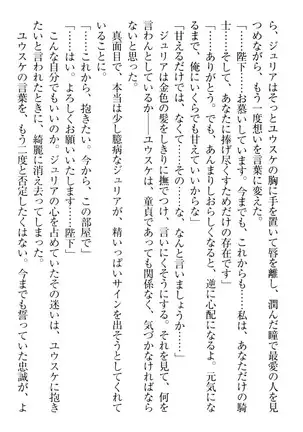 ら、ジュリアはユウスケの胸に手を置いて唇を離し、潤んだ瞳で最愛の人を見
つめながら、もう一度想いを言葉に変えた。
「……陛下……お慕いしています。今までも、これからも……私は、あなただけの騎
士……そして、あなたに捧げ尽くすためだけの存在です」
「……ありがとう。でも、あんまりしおらしくなると、逆に心配になるよ。元気にな
るまで、俺にいくらでも甘えていいからな」
「甘えるだけでは、なくて……その……な、なんと言いましょうか……」
ジュリアは金色の髪をしきりに撫で、言いにくそうにする。それを見て、何を
言わんとしているか――ユウスケは、童貞であっても関係なく、気づかなければなら
ないと思った。
真面目で、本当は少し臆病なジュリアが、精いっぱいサインを出そうとしてくれて
いることに。
「……これから、抱きたい。今から、この部屋で」
「……はい。よろしくお願いいたします……陛下」
こんな自分でもいいのか、ジュリアの心を占めていたその迷いは、ユウスケに抱き
たいと言われたときに、綺麗に消え去ってしまった。
ユウスケの言葉を、もう二度と否定したくはない。今までも誓っていた忠誠が、よ